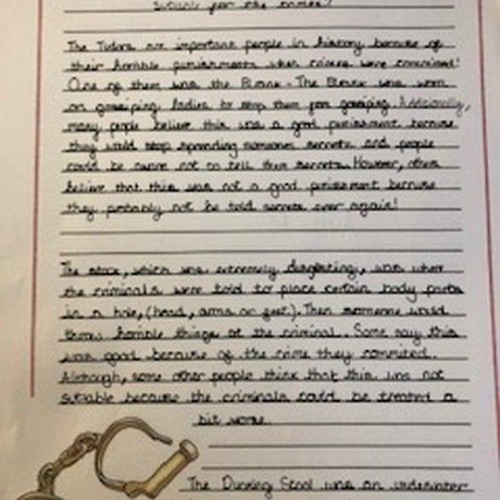 suitable for the crimes?
The Tudors are important people in history because of
their horrible punishments when crimes were commited!
One of them was the Branks. The Branks was worn
on gossiping ladies to stop them from gossiping. Additionally,
many people believe this was a good punishment because
they would stop spreading someones secrets and people
could be aware not to tell them secrets. However, others
believe that this was not a good punishment because
they probably not be told secrets ever again!
The stock, which was extremely disgusting, was where
the criminals were told to place certain body parts
in a hole, (head, arms or feet). Then someone would
throw horrible things at the criminal. Some say this
was good because of the crime they commited.
Although, some other people think that this was not
suitable because the criminals could be treated a
bit worse.
The Ducking Stool was an underwater